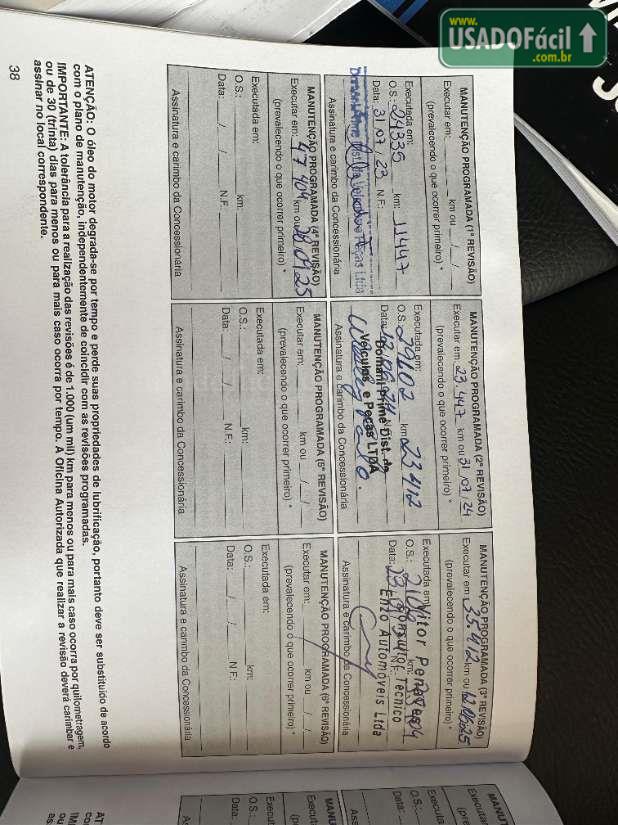 www.
USADOFácil
.com.br
MANUTENÇÃO PROGRAMADA (1ª REVISÃO)
Executar em: km ou / /
(prevalecendo o que ocorrer primeiro) *
Executada em:
O.S.: 24335 km: 11447
Data: 31/07/23 N.F.:
Assinatura e carimbo da Concessionária
MANUTENÇÃO PROGRAMADA (2ª REVISÃO)
Executar em: 23.447 km ou 31/07/24
(prevalecendo o que ocorrer primeiro) *
Executada em:
O.S.: 29602 km: 23412
Data:
Domani Prime Dist. de
Veículos e Peças LTDA
Assinatura e carimbo da Concessionária
MANUTENÇÃO PROGRAMADA (3ª REVISÃO)
Executar em: 35.412 km ou
(prevalecendo o que ocorrer primeiro) *
Executada em:
O.S.: km:
Data: N.F.:
Vitor
Consultor Técnico
Enzo Automóveis Ltda
Assinatura e carimbo da Concessionária
MANUTENÇÃO PROGRAMADA (4ª REVISÃO)
Executar em: 47404 km ou
(prevalecendo o que ocorrer primeiro) *
Executada em:
O.S.: km:
Data: / / N.F.:
Assinatura e carimbo da Concessionária
MANUTENÇÃO PROGRAMADA (5ª REVISÃO)
Executar em: km ou / /
(prevalecendo o que ocorrer primeiro) *
Executada em:
O.S.: km:
Data: / / N.F.:
Assinatura e carimbo da Concessionária
MANUTENÇÃO PROGRAMADA (6ª REVISÃO)
Executar em: km ou / /
(prevalecendo o que ocorrer primeiro) *
Executada em:
O.S.: km:
Data: / / N.F.:
Assinatura e carimbo da Concessionária
ATENÇÃO: O óleo do motor degrada-se por tempo e perde suas propriedades de lubrificação, portanto deve ser substituído de acordo
com o plano de manutenção, independentemente de coincidir com as revisões programadas.
IMPORTANTE: A tolerância para a realização das revisões é de 1.000 (um mil) km para menos ou para mais caso ocorra por quilometragem,
ou de 30 (trinta) dias para menos ou para mais caso ocorra por tempo. A Oficina Autorizada que realizar a revisão deverá carimbar e
assinar no local correspondente.
38